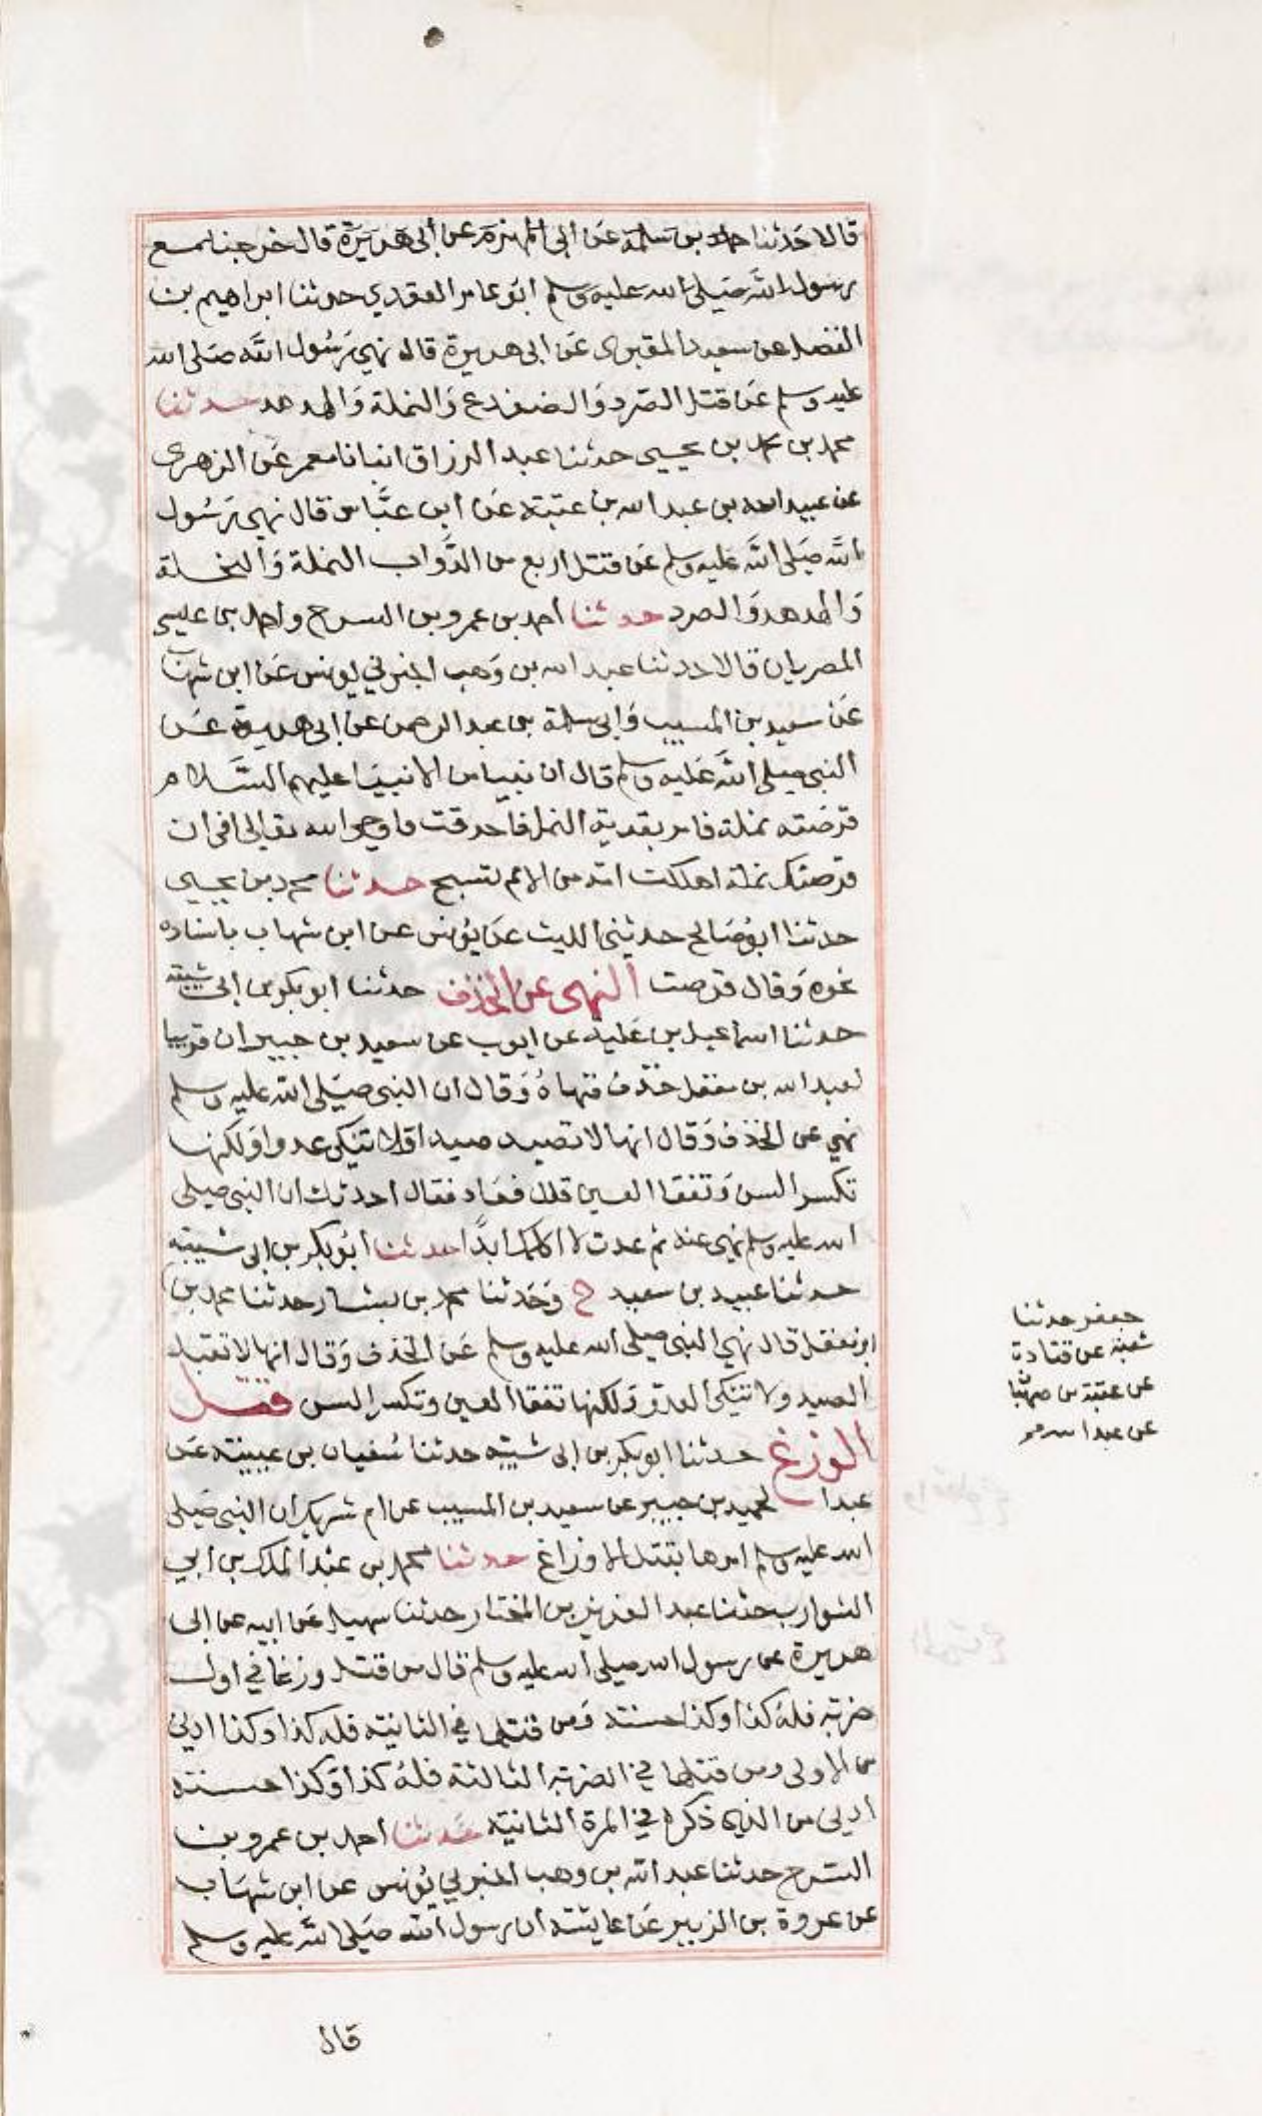 قالا حدثنا حماد بن سلمة عن ابى المهزم عن أبى هريرة قال خرجنا مع
رسول الله صلى الله عليه وسلم ابو عامر العقدي حدثنا ابراهيم بن
الفضل عن سعيد المقبرى عن ابى هريرة قال نهى رسول الله صلى الله
عليه وسلم عن قتل الصرد والضفدع والنملة والهدهد حدثنا
محمد بن محمد بن يحيى حدثنا عبد الرزاق انبانا معمر عن الزهرى
عن عبيد الله بن عبد الله بن عتبة عن ابن عباس قال نهى رسول
الله صلى الله عليه وسلم عن قتل اربع من الدواب النملة والنحلة
والهدهد والصرد حدثنا احمد بن عمرو بن السرح واحمد بن عيسى
المصريان قالا حدثنا عبد الله بن وهب اخبرني يونس عن ابن شهاب
عن سعيد بن المسيب وابى سلمة بن عبد الرحمن عن ابى هريرة عن
النبى صلى الله عليه وسلم قال ان نبيا من الانبيا عليهم السلام
قرصته نملة فامر بقرية النمل فاحرقت فاوحى الله تعالى افى ان
قرصتك نملة اهلكت امة من الامم تسبح حدثنا محمد بن يحيى
حدثنا ابو صالح حدثنى الليث عن يونس عن ابن شهاب باسناده
نحوه وقال قرصت النهى عن الخذف حدثنا ابو بكر بن ابى شيبة
حدثنا اسماعيل بن علية عن ايوب عن سعيد بن جبير ان قريبا
لعبد الله بن مغفل خذف فنهاه وقال ان النبى صلى الله عليه وسلم
نهى عن الخذف وقال انها لا تصيد صيدا ولا تنكى عدوا ولكنها
تكسر السن وتفقا العين قال فعاد فقال احدثك ان النبى صلى
الله عليه وسلم نهى عنه ثم عدت لا اكلمك ابدا حدثنا ابو بكر بن ابى شيبة
حدثنا عبيد بن سعيد ح وحدثنا محمد بن بشار حدثنا محمد بن
ابن مغفل قال نهى النبى صلى الله عليه وسلم عن الخذف وقال انها لا تقتل
الصيد ولا تنكى العدو ولكنها تفقا العين وتكسر السن قتل
الوزغ حدثنا ابو بكر بن ابى شيبة حدثنا سفيان بن عيينة عن
عبد الحميد بن جبير عن سعيد بن المسيب عن ام شريك ان النبى صلى
الله عليه وسلم امرها بقتل الاوزاغ حدثنا محمد بن عبد الملك بن ابي
الشوارب حدثنا عبد العزيز بن المختار حدثنا سهيل عن ابيه عن ابى
هريرة عن رسول الله صلى الله عليه وسلم قال من قتل وزغا في اول
ضربة فله كذا وكذا حسنة ومن قتلها في الثانية فله كذا وكذا ادنى
من الاولى ومن قتلها في الضربة الثالثة فله كذا وكذا حسنة
ادنى من الذى ذكره في المرة الثانية حدثنا احمد بن عمرو بن
السرح حدثنا عبد الله بن وهب اخبرني يونس عن ابن شهاب
عن عروة بن الزبير عن عايشة ان رسول الله صلى الله عليه وسلم
قال
جعفر حدثنا
شعبة عن قتادة
عن عقبة بن صهبا
عن عبد الله